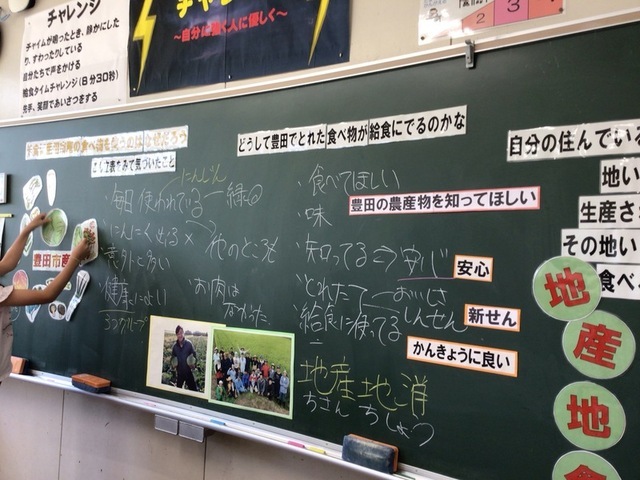 チャレンジ
チャイムが鳴ったとき、静かにした
り、すわったりしている
自分たちで声をかける
給食タイムチャレンジ(8分30秒)
笑顔であいさつをする
チャレン
～自分に強く人に優しく～
2 3
食べ物を なぜだろう
こん立表をみて気づいたこと
にんじん
・毎日使われている 緑の
・にんにく 他のところ
・意外と多い
・健康によい
3つグループ
・お肉は
なかった
豊田市産
どうして豊田でとれた食べ物が給食にでるのかな
・食べてほしい
豊田の農産物を知ってほしい
・味
・知ってる⇒安心
安心
・とれたて おいしさ
しんせん
新せん
・給食に使ってる
かんきょうに良い
地産地消
ちさんちしょう
自分の住んでいる
地い
生産さ
その地い
食べ
地
産
地